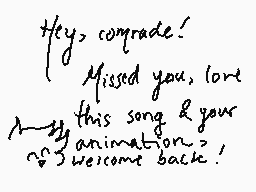 Hey, comrade!
Missed you, love
this song & your
animation,
welcome back!